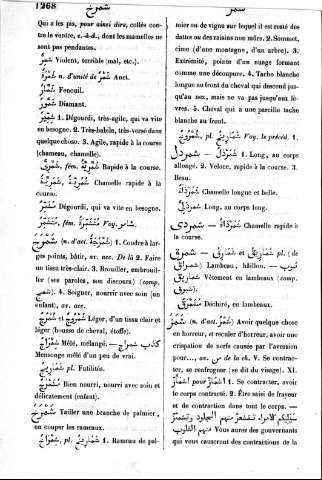 1268 شمرج
Qui a les pis, pour ainsi dire, collés con-
tre le ventre, c.-à-d., dont les mamelles ne
sont pas pendantes.
Violent, terrible (mal, etc.).
n. d'unité de Anet.
Fenouil.
Diamant.
1. Dégourdi, très-agile, qui va vite
en besogne. 2. Très-habile, très-versé dans
quelque chose. 3. Agile, rapide à la course
(chameau, chamelle).
fém. Rapide à la course.
Chamelle rapide à la
course.
Dégourdi, qui va vite en besogne.
fém. Voy.
(n. d'act. شَمْرَجَة) 1. Coudre à lar-
ges points, bâtir, av. acc. De là 2. Faire
un tissu très-clair. 3. Brouiller, embrouil-
ler (ses paroles, son discours) (comp.
شمرق). 4. Soigner, nourrir avec soin (un
enfant), av. acc.
Léger, d'un tissu clair et
léger (housse de cheval, étoffe).
Mêlé, mélangé. — كذب شمراج
Mensonge mêlé d'un peu de vrai.
pl. Futilités.
Bien nourri, nourri avec soin et
délicatement (enfant).
شَمْرَخَ Tailler une branche de palmier,
en couper les rameaux.
شِمْرَاخ, pl. شَمَارِيخ 1. Rameau de pal-
mier ou de vigne sur lequel il est resté des
dattes ou des raisins une mûrs. 2. Sommet,
cime (d'une montagne, d'un arbre). 3.
Extrémité, pointe d'un nuage formant
comme une découpure. 4. Tache blanche
longue au front du cheval qui descend jus-
qu'au nez, mais ne va pas jusqu'aux lè-
vres. 5. Cheval qui a une pareille tache
blanche au front.
شُمْرُوخ, pl. شَمَارِيخ Voy. le précéd. 1.
شمردل — شَمَرْدَل 1. Long, au corps
allongé. 2. Véloce, rapide à la course. 3.
Beau.
Chamelle longue et belle.
Long, au corps long.
شمردى — Chamelle rapide à
la course.
شمرق — شَمَارِق et شَمَارِيق pl. (de
شمراق) Lambeau, haillon. — ثوب
شماريق Vêtement en lambeaux (comp.
شبرق).
Déchiré, en lambeaux.
شَمَزَ (n. d'act. شَمْز) Avoir quelque chose
en horreur, et reculer d'horreur, avoir une
crispation de nerfs causée par l'aversion
pour..., av. من de la ch. V. Se contrac-
ter, se renfrogner (se dit du visage). XI.
اشمأزّ pour 1. Se contracter, avoir
le corps contracté. 2. Être saisi de frayeur
et de contraction dans tout le corps. —
سيليكم أمراء تقشعر منهم الجلود وتشمئز
منهم القلوب Vous aurez des gouvernants
qui vous causeront des contractions de la